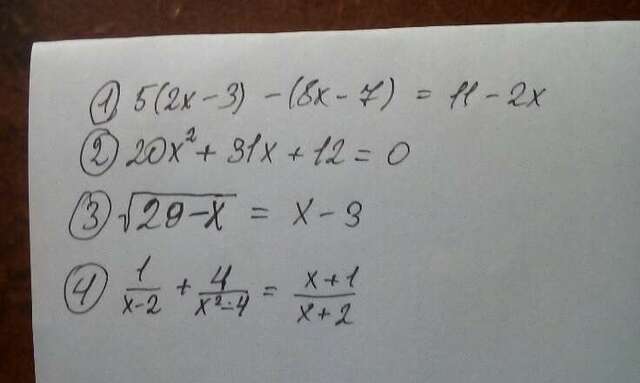 ① 5(2x-3) - (8x-7) = 11-2x
② 20x² + 31x + 12 = 0
③ √(29-x) = x-3
④ 1/(x-2) + 4/(x²-4) = (x+1)/(x+2)